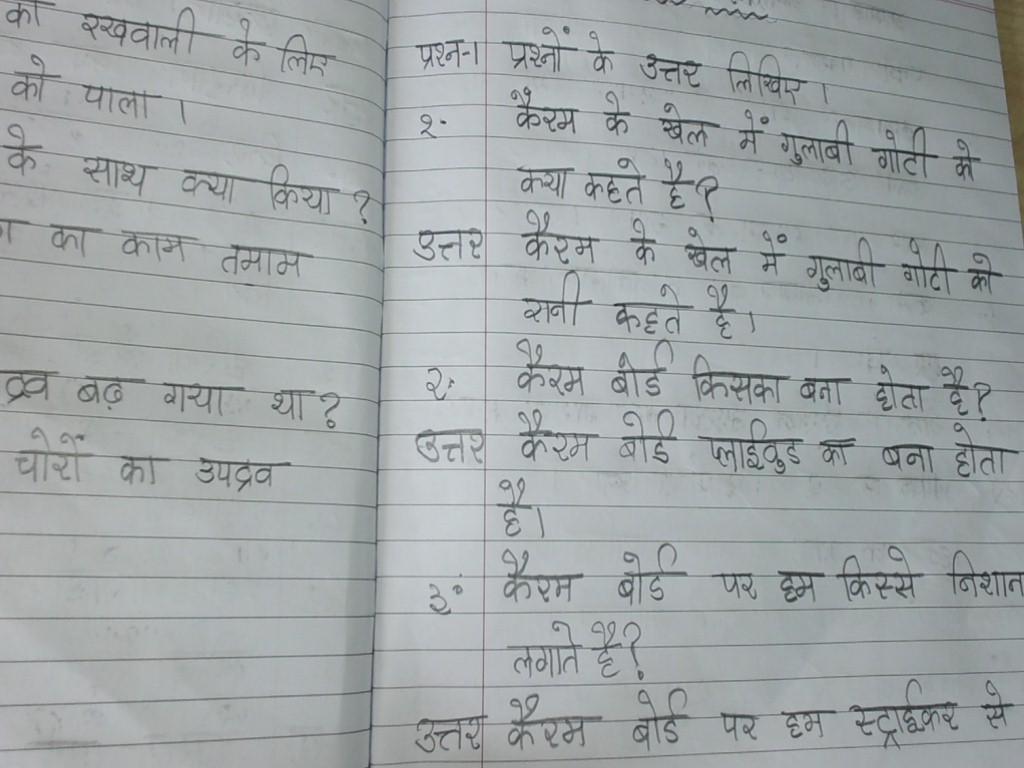 की रखवाली के लिए
को पाला।
के साथ क्या किया?
का काम तमाम
द्रव बढ़ गया था?
चोरों का उपद्रव
प्रश्न-१ प्रश्नों के उत्तर लिखिए।
१. कैरम के खेल में गुलाबी गोटी को
क्या कहते है?
उत्तर कैरम के खेल में गुलाबी गोटी को
रानी कहते है।
२. कैरम बोर्ड किसका बना होता है?
उत्तर कैरम बोर्ड प्लाईवुड का बना होता
है।
३. कैरम बोर्ड पर हम किस्से निशान
लगाते है?
उत्तर कैरम बोर्ड पर हम स्ट्राईकर से